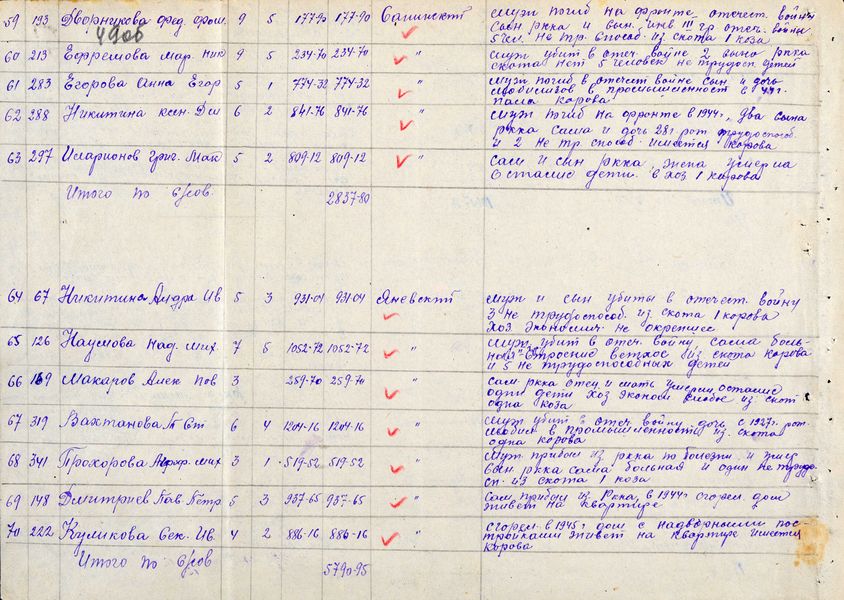 59 193 Дворникова Фед. 9 5 177-90 177-90 Саминский муж погиб на фронте отечест. войны
сын ркка и сын. инв III гр. отеч. войны
5 чел. не тр. способ. из скота 1 коза
60 213 Ефремова Мар. Ник 9 5 234-70 234-70 " муж убит в отеч. войне 2 сына ркка
скота нет 5 человек не трудосп. детей
61 283 Егорова Анна Егор 5 1 774-32 774-32 " муж погиб в отечест войне сын и дочь
в промышленност в
пала корова
62 288 Никитина 6 2 841-76 841-76 " муж погиб на фронте в 1944 г., два сына
ркка сама и дочь 28 г рот трудоспособ
и 2 не тр. способ. имеется корова
63 297 Иларионов Григ. Мак 5 2 809-12 809-12 " сам и сын ркка жена умерла
остались дети. в хоз 1 корова
Итого по с/сов. 2837-80
64 67 Никитина Ив 5 3 931-04 931-04 Яневский муж и сын убиты в отечест. войну
3 не трудоспособ. из скота 1 корова
хоз экономич. не окрепшее
65 126 Наумова Над. Мих. 7 5 1052-72 1052-72 " муж убит в отеч. войну, сама боль-
ная строение ветхое из скота корова
и 5 не трудоспособных детей
66 169 Макаров Алек Пав 3 259-70 259-70 " сам ркка отец и мать умерли остались
одни дети хоз эконом слабое из скот
одна коза
67 319 Вахтанова 6 4 1204-16 1204-16 " муж убит в отеч войну дочь с 1927 г. рот.
в промышленность из скота
одна корова
68 341 Прохорова Мих 3 1 519-52 519-52 " муж прибыл из ркка по болезни и умер
сын ркка сама больная и один не трудо
сп. из скота 1 коза
69 148 Дмитриев Пав Петр 5 3 937-65 937-65 " сам прибыл из Ркка, в 1944 г сгорел дом
живет на квартире
70 222 Куликова Ив. 4 2 886-16 886-16 " сгорел в 1945 г дом с надворными пос-
тройками живет на квартире имеется
корова
Итого по с/сов 5790-95